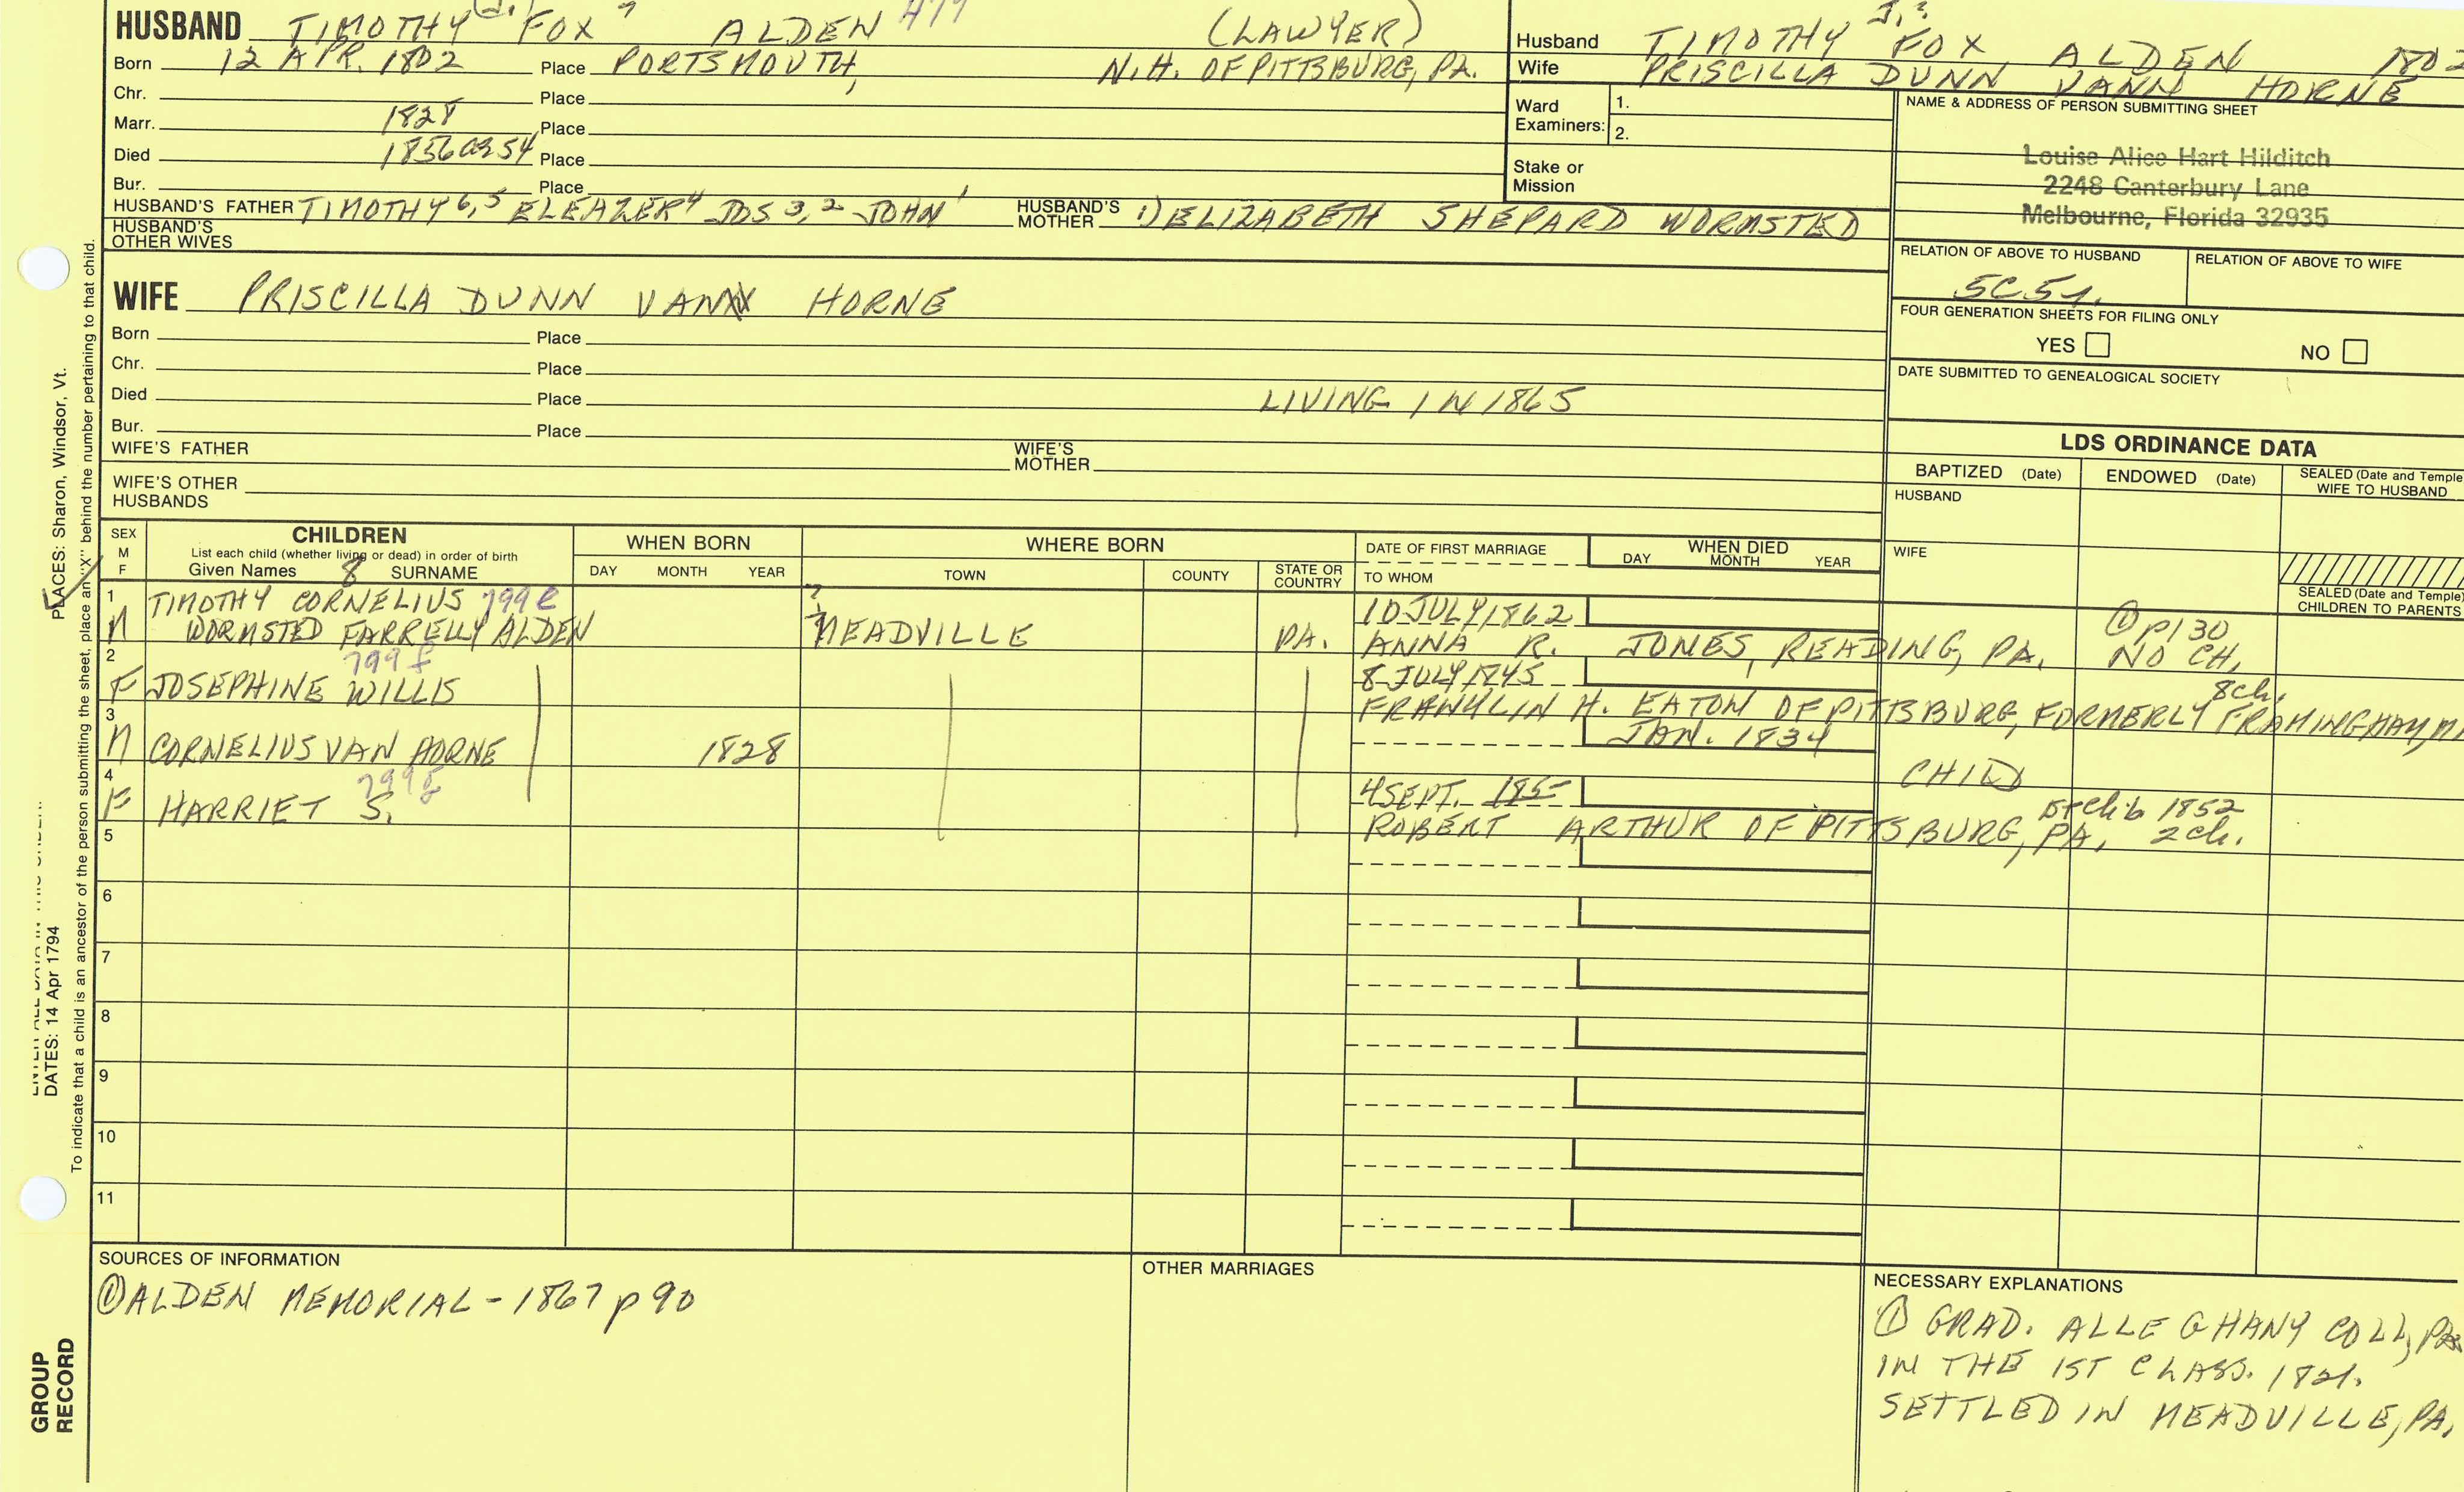 HUSBAND TIMOTHY FOX 7 ALDEN 477 (LAWYER)
Born 12 APR. 1802 Place PORTSMOUTH, N.H. OF PITTSBURG, PA.
Chr. Place
Marr. 1828 Place
Died 1856 Place
Bur. Place
HUSBAND'S FATHER TIMOTHY 6,5 ELEAZER 4 JOS 3,2 JOHN 1 HUSBAND'S MOTHER 1) ELIZABETH SHEPARD WORMSTED
HUSBAND'S OTHER WIVES
Husband TIMOTHY J.? FOX ALDEN 1802
Wife PRISCILLA DUNN VANN HORNE
Ward Examiners: 1.
2.
Stake or Mission
NAME & ADDRESS OF PERSON SUBMITTING SHEET
Louise Alice Hart Hilditch
2248 Canterbury Lane
Melbourne, Florida 32935
RELATION OF ABOVE TO HUSBAND RELATION OF ABOVE TO WIFE
FOUR GENERATION SHEETS FOR FILING ONLY
YES NO
DATE SUBMITTED TO GENEALOGICAL SOCIETY
WIFE PRISCILLA DUNN VAN HORNE
Born Place
Chr. Place
Died Place LIVING IN 1865
Bur. Place
WIFE'S FATHER WIFE'S MOTHER
WIFE'S OTHER HUSBANDS
LDS ORDINANCE DATA
BAPTIZED (Date) ENDOWED (Date) SEALED (Date and Temple) WIFE TO HUSBAND
HUSBAND
WIFE
SEALED (Date and Temple) CHILDREN TO PARENTS
SEX M F CHILDREN
List each child (whether living or dead) in order of birth
Given Names 8 SURNAME
WHEN BORN
DAY MONTH YEAR
WHERE BORN
TOWN COUNTY STATE OR COUNTRY
DATE OF FIRST MARRIAGE
TO WHOM
WHEN DIED
DAY MONTH YEAR
1 TIMOTHY CORNELIUS 799e ? 10 JULY 1862
M WORMSTED FARRELLY ALDEN MEADVILLE PA. ANNA R. JONES, READING, PA. ① p130 NO CH.
2 799f 8 JULY 1845
F JOSEPHINE WILLIS FRANKLIN H. EATON OF PITTSBURG, FORMERLY FRAMINGHAM, 8ch.
3 JAN. 1834
M CORNELIUS VAN HORNE 1828 CHILD
4 799g 4 SEPT. 185-
F HARRIET S. ROBERT ARTHUR OF PITTSBURG, PA. 1852 2ch.
5
6
7
8
9
10
11
SOURCES OF INFORMATION
① ALDEN MEMORIAL - 1867 p 90
OTHER MARRIAGES
NECESSARY EXPLANATIONS
① GRAD. ALLEGHANY COLL, PA.
IN THE 1ST CLASS. 1821.
SETTLED IN MEADVILLE, PA.
PLACES: Sharon, Windsor, Vt.
DATES: 14 Apr 1794
To indicate that a child is an ancestor of the person submitting the sheet, place an "X" behind the number pertaining to that child.
GROUP RECORD